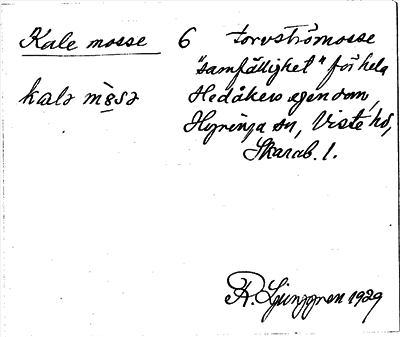 Kale mosse 6 torvströmosse
"samfällighet" för hela
kalə Hedåkers egendom,
Hyringa sn, Viste hd,
Skarab. l.
R. Ljunggren 1929